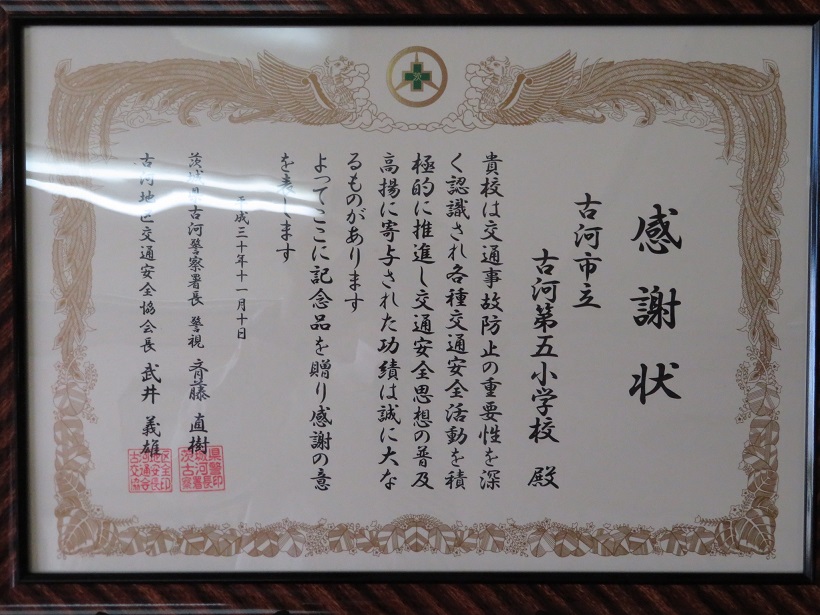 感謝状
古河市立
古河第五小学校 殿
貴校は交通事故防止の重要性を深
く認識され各種交通安全活動を積
極的に推進し交通安全思想の普及
高揚に寄与された功績は誠に大な
るものがあります
よってここに記念品を贈り感謝の意
を表します
平成三十年十一月十日
茨城県古河警察署長 警視 斉藤 直樹
古河地区交通安全協会長 武井 義雄